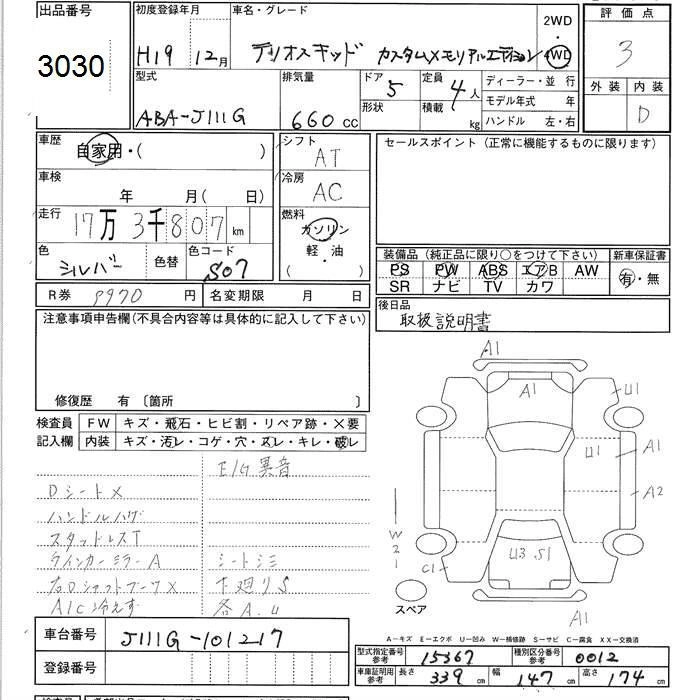 出品番号
3030
初度登録年月
H19 12月
車名・グレード
テリオスキッド カスタムメモリアルエディション
2WD
・
4WD
評価点
3
型式
ABA-J111G
排気量
660 cc
ドア 5
形状
定員 4人
積載 kg
ディーラー・並行
モデル年式 年
ハンドル 左・右
外装 内装
D
車歴
自家用・( )
シフト
AT
車検
年 月(日)
冷房
AC
走行
17万3千807km
燃料
ガソリン
軽・油
( )
色
シルバー
色替
色コード
S07
R券 9970 円
名変期限 月 日
セールスポイント(正常に機能するものに限ります)
装備品(純正品に限り○をつけて下さい)
新車保証書
PS PW ABS エアB AW
SR ナビ TV カワ
有・無
後日品
取扱説明書
注意事項申告欄(不具合内容等は具体的に記入して下さい)
修復歴 有〔箇所 〕
検査員
記入欄
FW キズ・飛石・ヒビ割・リペア跡・X要
内装 キズ・汚レ・コゲ・穴・スレ・キレ・破レ
E/G異音
DシートX
ハンドルハゲ
スタッドレスT
ウインカーミラーA
シートシミ
右DシャフトブーツX
下廻りS
A/C冷えず
各A.U
A1
A1
U1
U1
A1
A2
W2
1
C1
U3 S1
A1
スペア
A-キズ E-エクボ U-凹み W-補修跡 S-サビ C-腐食 XX-交換済
車台番号
J111G-101217
登録番号
型式指定番号
参考
15367
種別区分番号
参考
0012
車庫証明用
参考
長さ 339cm
幅 147cm
高さ 174cm